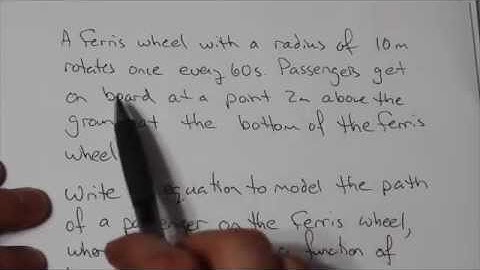 A ferris wheel with a radius of 10m
rotates once every 60s. Passengers get
on board at a point 2m above the
at the bottom of the ferris
wheel
Write equation to model the path
of a on the ferris wheel,
a function of